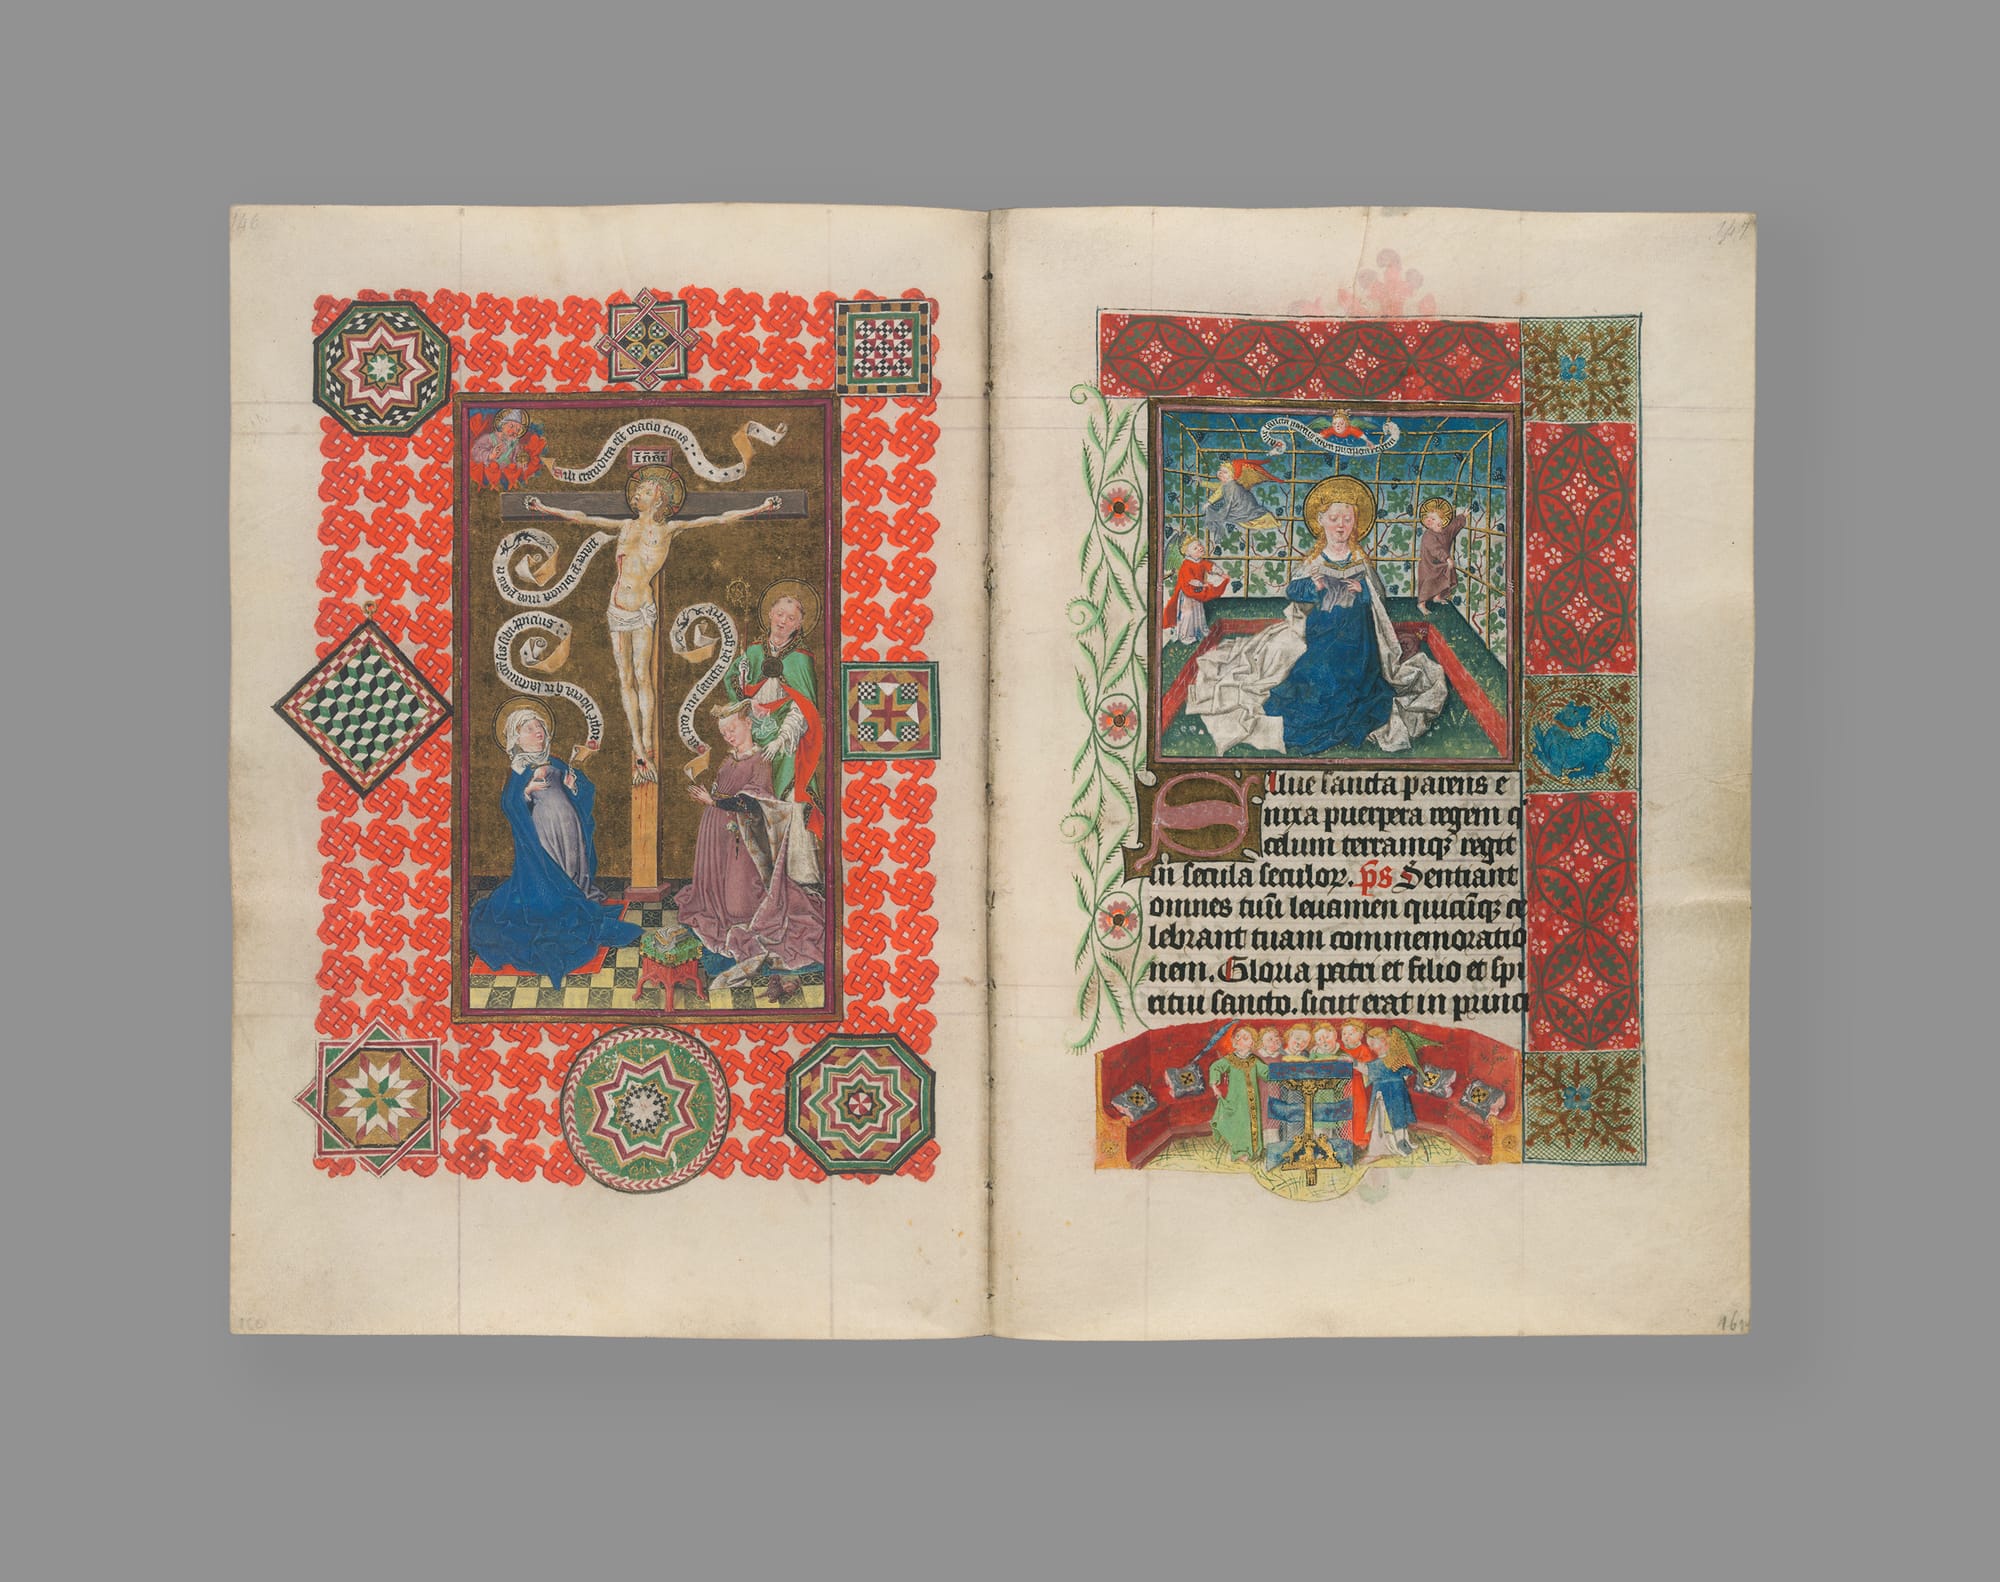 146
fili exaudita est oratio tua
INRI
147
Salue sancta parens e
nixa puerpera regem q
celum terramqꝫ regit
in secula seculoꝝ. p̄s Sentiant
omnes tuū leuamen quicūqꝫ ce
lebrant tuam commemoratio
nem. Gloria patri et filio et spi
ritui sancto. sicut erat in princi
160